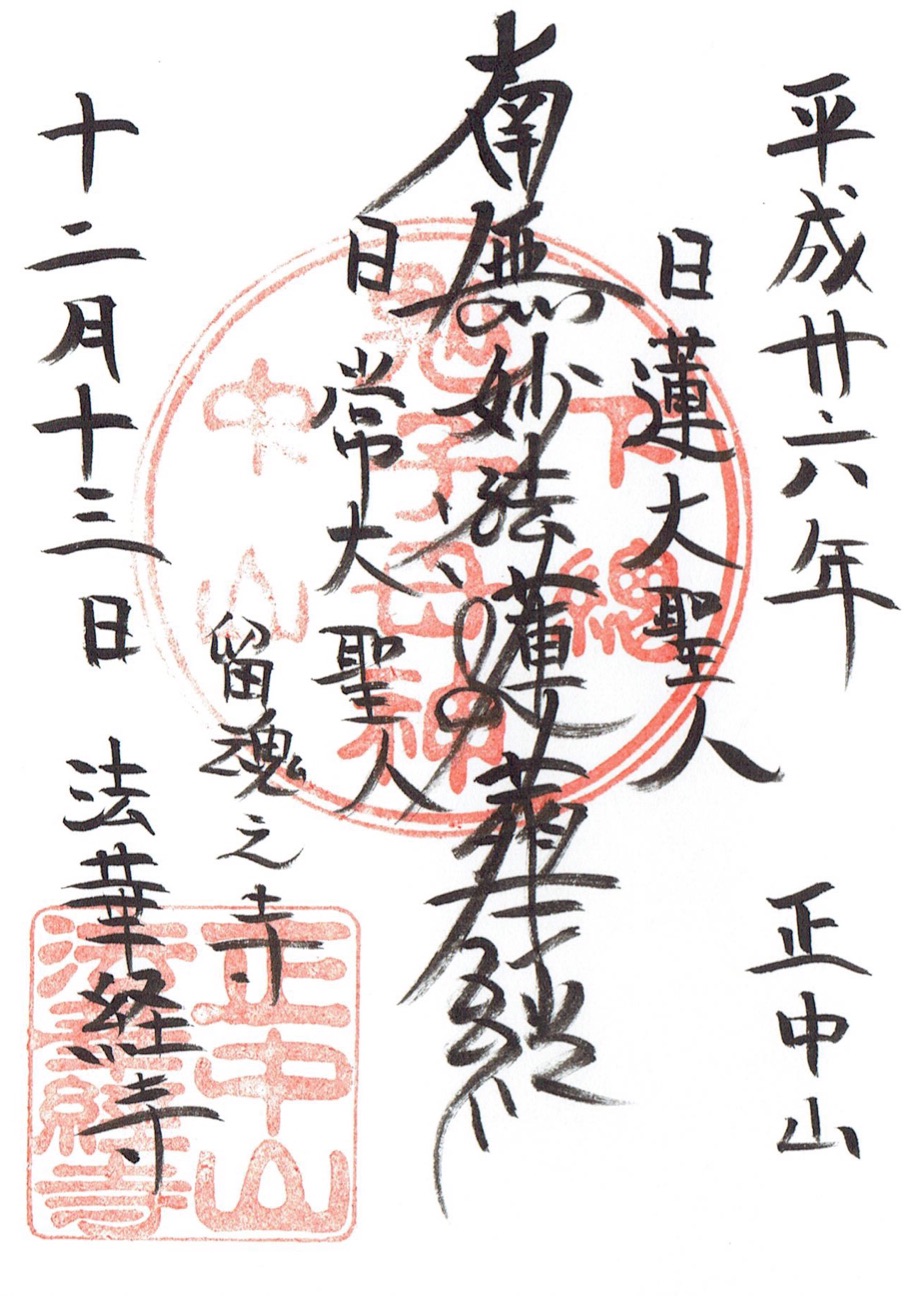 平成廿六年 正中山
日蓮大聖人
南無妙法蓮華経
日常大聖人
留魂之寺
十二月十三日 法華経寺
下總
鬼子母神
中山
正中山
法華経寺